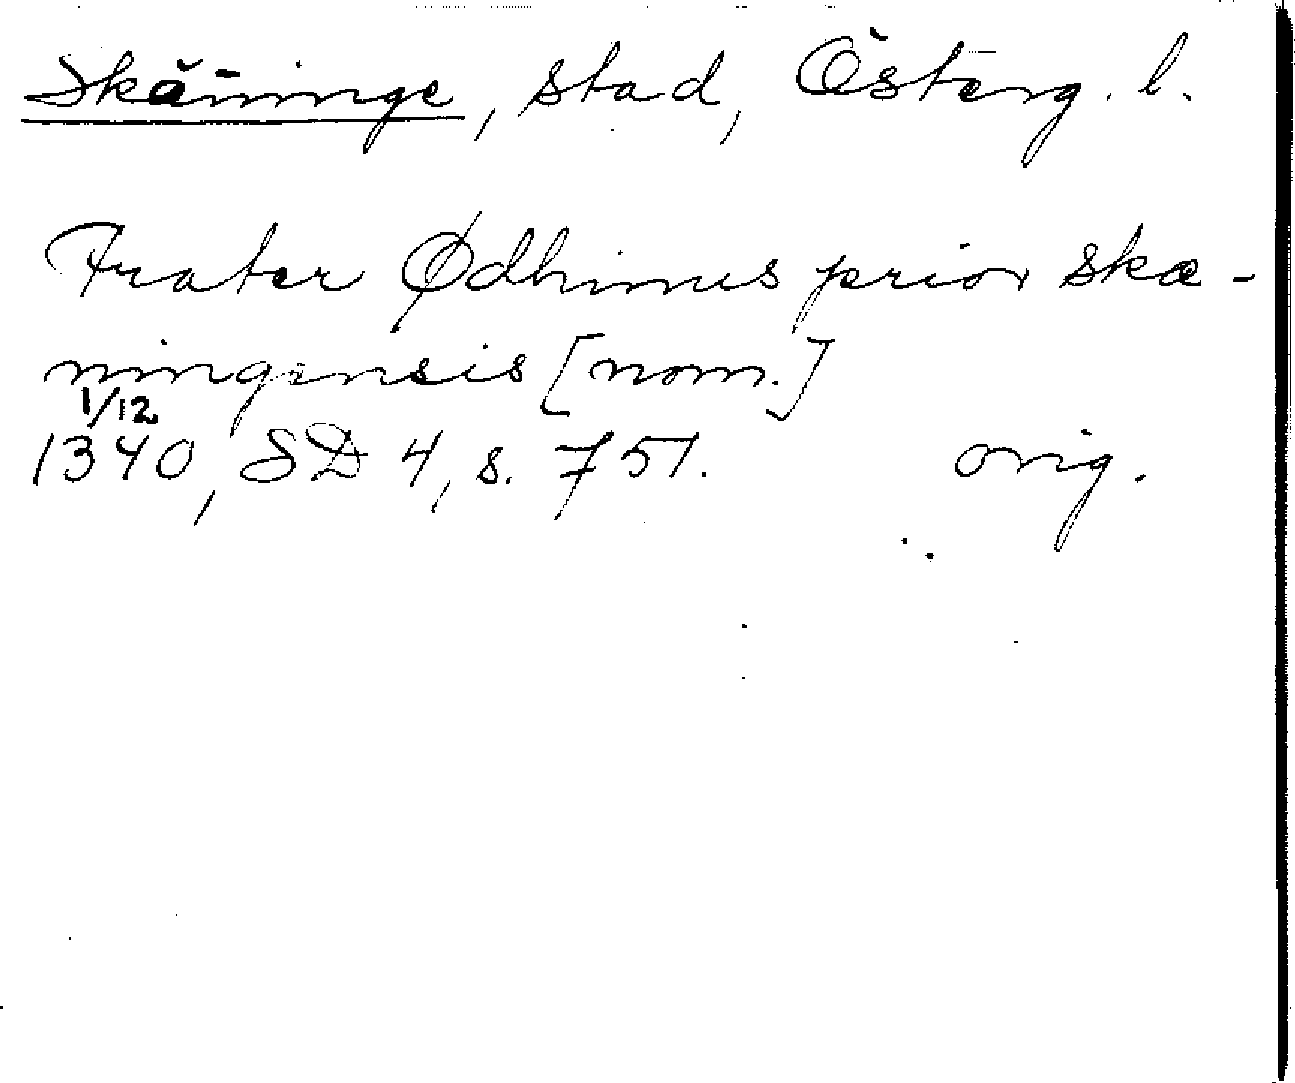 Skänninge, stad, Österg. l.
Frater Ødhinus prior skæ-
ningensis [nom.]
1/12
1340, SD 4, s. 751. orig.